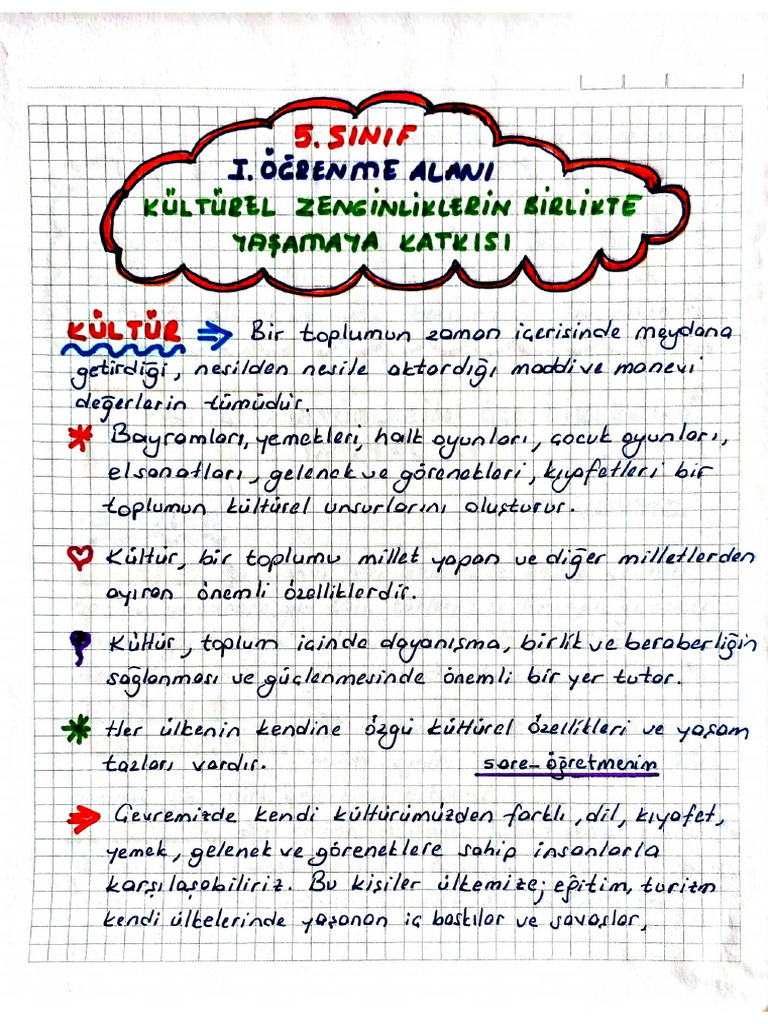 5. SINIF
I. ÖĞRENME ALANI
KÜLTÜREL ZENGİNLİKLERİN BİRLİKTE
YAŞAMAYA KATKISI
KÜLTÜR ⇒ Bir toplumun zaman içerisinde meydana
getirdiği, nesilden nesile aktardığı maddi ve manevi
değerlerin tümüdür.
Bayramları, yemekleri, halk oyunları, çocuk oyunları,
el sanatları, gelenek ve görenekleri, kıyafetleri bir
toplumun kültürel unsurlarını oluşturur.
Kültür, bir toplumu millet yapan ve diğer milletlerden
ayıran önemli özelliklerdir.
Kültür, toplum içinde dayanışma, birlik ve beraberliğin
sağlanması ve güçlenmesinde önemli bir yer tutar.
Her ülkenin kendine özgü kültürel özellikleri ve yaşam
tazları vardır.
sare-öğretmenim
Çevremizde kendi kültürümüzden farklı, dil, kıyafet,
yemek, gelenek ve göreneklere sahip insanlarla
karşılaşabiliriz. Bu kişiler ülkemize; eğitim, turizm
kendi ülkelerinde yaşanan iç baskılar ve savaşlar,